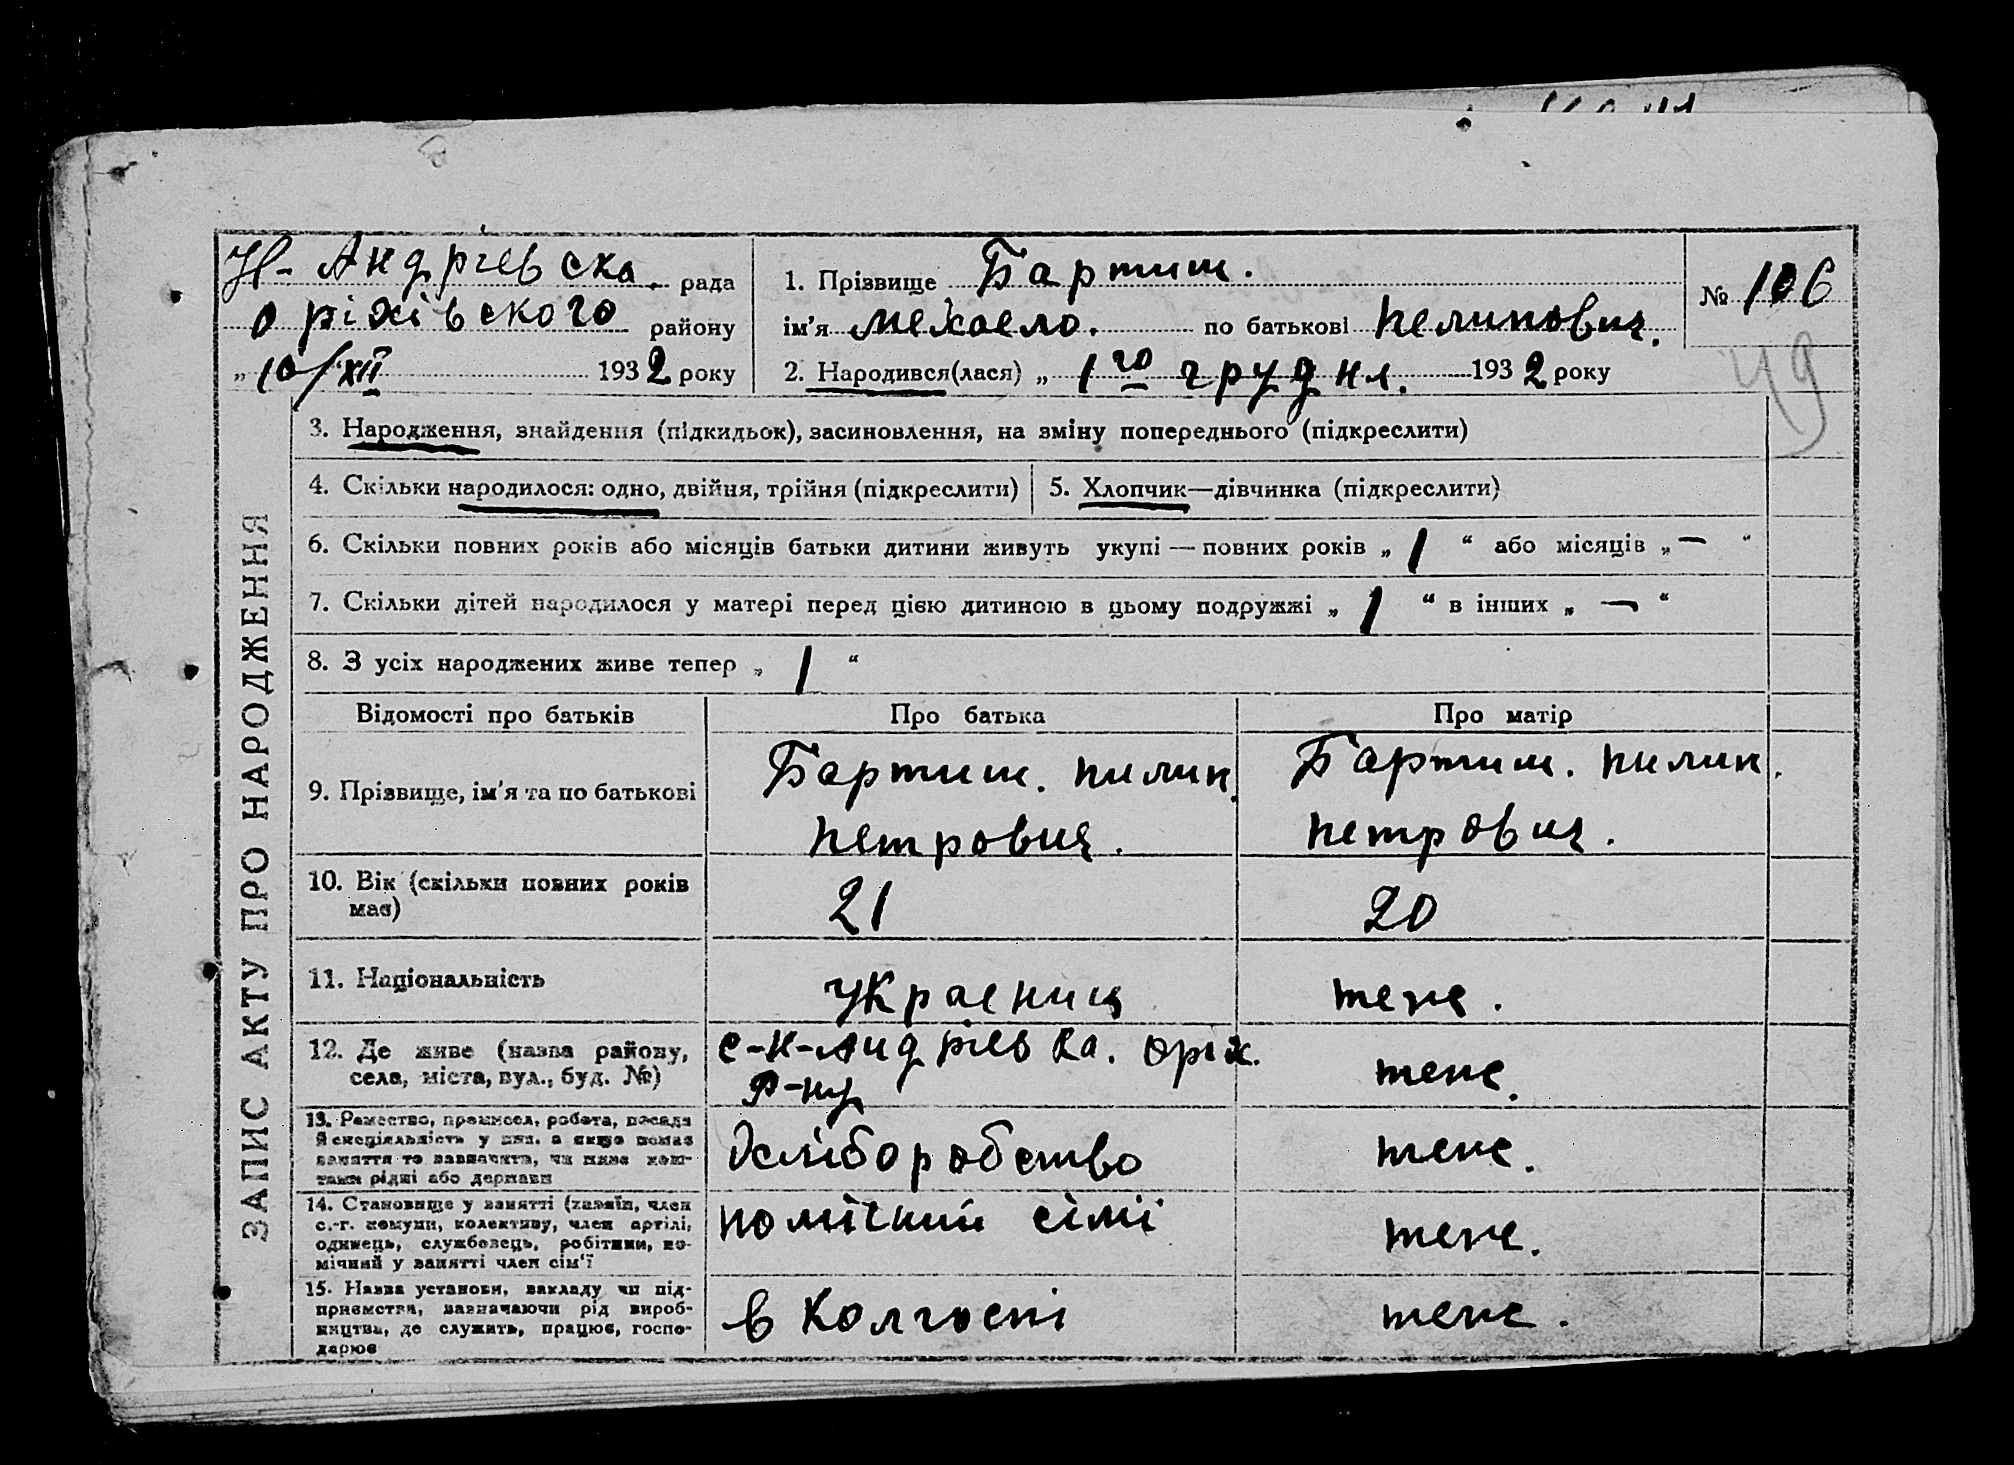 Н-Андрієвска. рада
оріхівского району
„ 10/XII 1932 року
1. Прізвище Бартиш.
ім'я мехаело. по батькові пелипович.
2. Народився(лася) „ 1го грудня. 1932 року
№ 106
49
ЗАПИС АКТУ ПРО НАРОДЖЕННЯ
3. Народження, знайдення (підкидьок), засиновлення, на зміну попереднього (підкреслити)
4. Скільки народилося: одно, двійня, трійня (підкреслити)
5. Хлопчик—дівчинка (підкреслити)
6. Скільки повних років або місяців батьки дитини живуть укупі — повних років „ 1 “ або місяців „ — “
7. Скільки дітей народилося у матері перед цією дитиною в цьому подружжі „ 1 “ в інших „ — “
8. З усіх народжених живе тепер „ 1 “
Відомості про батьків Про батька Про матір
9. Прізвище, ім'я та по батькові
Бартиш. пилип.
петрович.
Бартиш. пилип.
петрович.
10. Вік (скільки повних років
має)
21
20
11. Національність
украениц
теж.
12. Де живе (назва району,
села, міста, вул., буд. №)
с-Н-Андрієвка. оріх.
р-ну
теже.
13. Ремество, промисел, робота, посада
й спеціяльність у них, а якщо немає
заняття то зазначити, чи живе кош-
тами рідні або держави
хліборобство
теже.
14. Становище у занятті (хазяїн, член
с.-г. комуни, колективу, член артілі,
одинець, службовець, робітник, по-
мічний у занятті член сім'ї
помічний сімї
теже.
15. Назва установи, закладу чи під-
приємства, зазначаючи рід вироб-
ництва, де служить, працює, госпо-
дарює
в Колгоспі
теже.